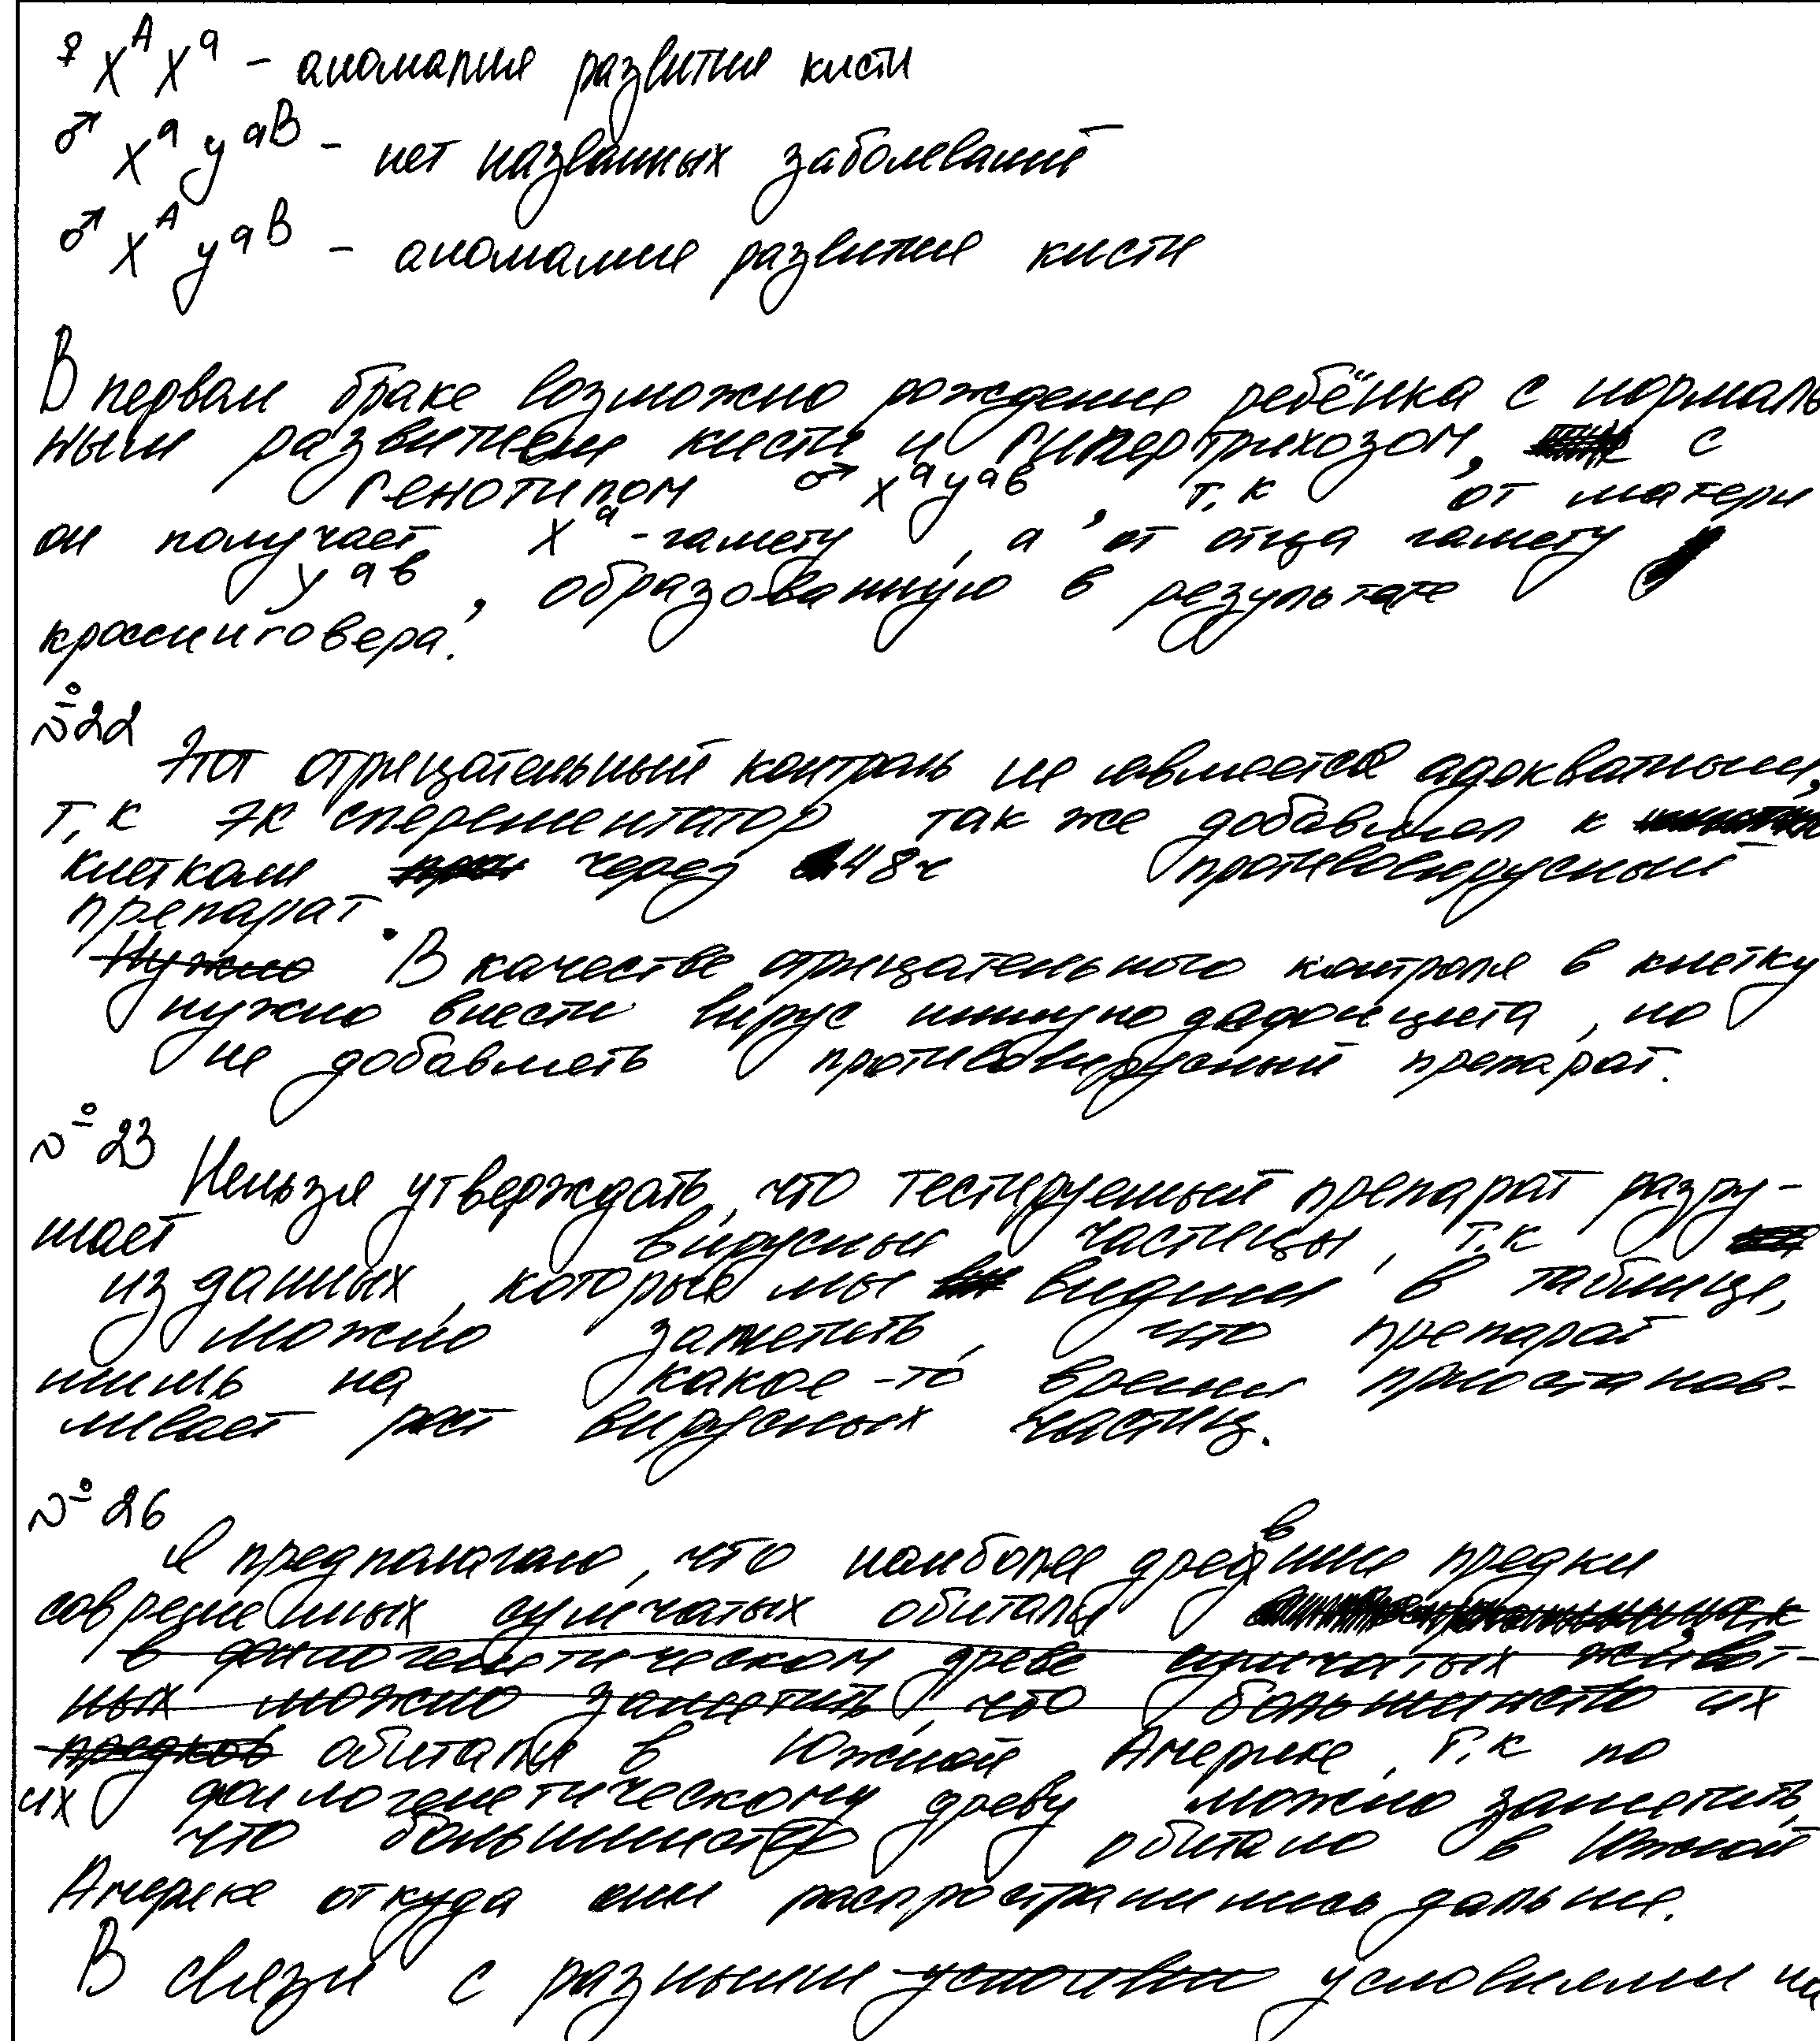 ♀ X^A X^a - аномалия развития кисти
♂ X^a y^aB - нет названных заболеваний
♂ X^A y^aB - аномалия развития кисти
В первом браке возможно рождение ребёнка с нормаль
ным развитием кисти и гипертрихозом, с
генотипом ♂ X^a y^ab, т.к от матери
он получает X^a-гамету, а от отца гамету
y^ab, образованную в результате
кроссинговера.
№22
Этот отрицательный контроль не является адокватным,
т.к эксперементатор так же добавлял к
клеткам через 48ч противовирусный
препарат.
Нужно В качестве отрицательного контроля в клетку
нужно внести вирус иммунодефицита, но
не добавлять противовирусный препарат.
№23
Нельзя утверждать, что тестируемый препарат разру-
шает вирусные частицы, т.к
из данных, которые мы видим в таблице,
можно заметить, что препарат
лишь на какое-то время приостанав-
ливает рост вирусных частиц.
№26
Я предпалагаю, что наиболее древние предки
современных сумчатых обитали
в филогенетическом древе сумчатых живот-
ных можно заметить, что большинство их
предков обитали в Южной Америке, т.к по
их филогенетическому древу можно заметить,
что большинство обитало в Южной
Америке откуда они распространились дальше.
В связи с разными условии условиями